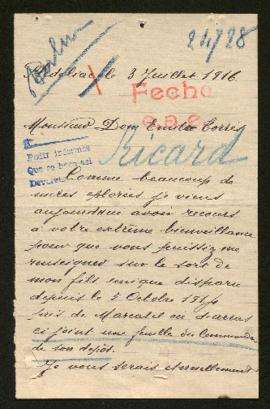 24728
le 3 Juillet 1916
Fecha
Monsieur Dom Emilio Torres
Ricard
Pedir informe
Que se haga así
Comme beaucoup de
mères éplorées je viens
aujourd'hui avoir recours
à votre extrême bienveillance
pour que vous puissiez me
renseigner sur le sort de
mon fils unique disparu
depuis le 2 Octobre 1914
près de
ci joint une feuille du Commandant
de son dépôt.
Je vous serais éternellement